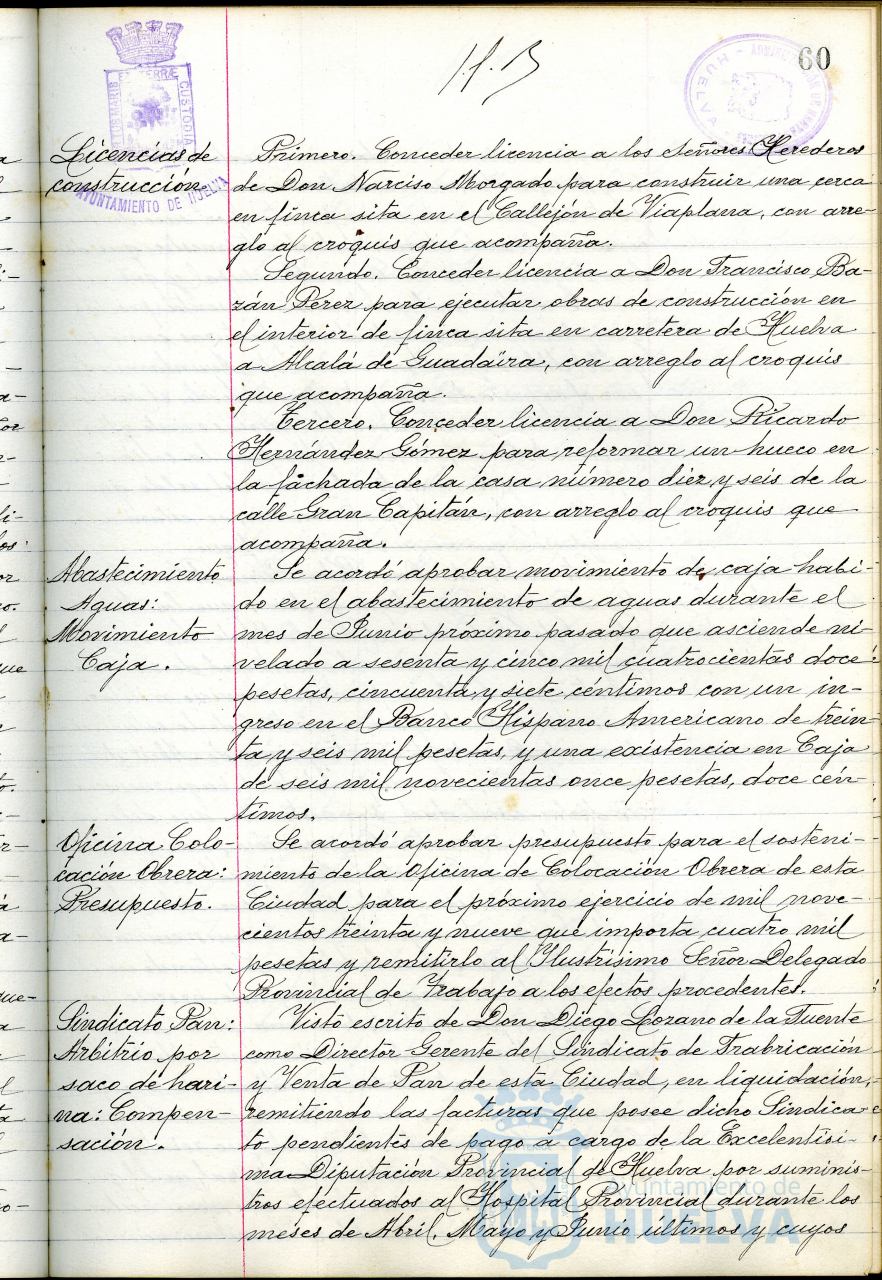 60
AYUNTAMIENTO DE HUELVA
CUSTODIA
HUELVA
Licencias de
construcción
Primero. Conceder licencia a los Señores Herederos
de Don Narciso Morgado para construir una cerca
en finca sita en el Callejón de Viaplana, con arre-
glo al croquis que acompaña.
Segundo. Conceder licencia a Don Francisco Ba-
zán Perez para ejecutar obras de construcción en
el interior de finca sita en carretera de Huelva
a Alcalá de Guadaira, con arreglo al croquis
que acompaña.
Tercero. Conceder licencia a Don Ricardo
Hernández Gómez para reformar un hueco en
la fachada de la casa número diez y seis de la
calle Gran Capitán, con arreglo al croquis que
acompaña.
Abastecimiento
Aguas:
Movimiento
Caja.
Se acordó aprobar movimiento de caja habi-
do en el abastecimiento de aguas durante el
mes de Junio próximo pasado que asciende ni-
velado a sesenta y cinco mil cuatrocientas doce
pesetas, cincuenta y siete céntimos con un in-
greso en el Banco Hispano Americano de trein-
ta y seis mil pesetas, y una existencia en Caja
de seis mil novecientas once pesetas, doce cén-
timos.
Oficina Colo-
cación Obrera:
Presupuesto.
Se acordó aprobar presupuesto para el sosteni-
miento de la Oficina de Colocación Obrera de esta
Ciudad para el próximo ejercicio de mil nove-
cientos treinta y nueve que importa cuatro mil
pesetas y remitirlo al Ilustrísimo Señor Delegado
Provincial de Trabajo a los efectos procedentes.
Sindicato Pan:
Arbitrio por
saco de hari-
na: Compen-
sación.
Visto escrito de Don Diego Lozano de la Fuente
como Director Gerente del Sindicato de Frabricación
y Venta de Pan de esta Ciudad, en liquidación,
remitiendo las facturas que posee dicho Sindica-
to pendientes de pago a cargo de la Excelentísi-
ma Diputación Provincial de Huelva por suminis-
tros efectuados al Hospital Provincial durante los
meses de Abril, Mayo y Junio últimos y cuyos
Ayuntamiento de
HUELVA